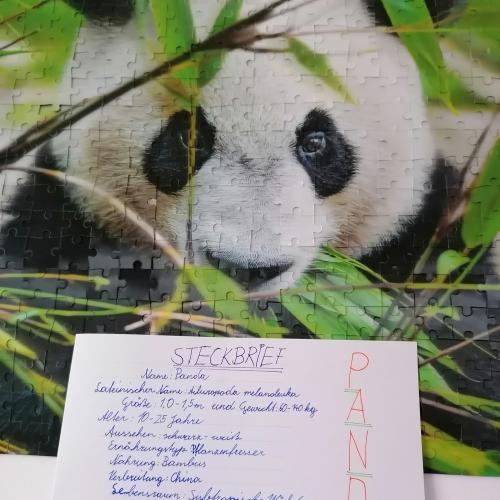 STECKBRIEF
Name: Panda
Lateinischer Name: Ailuropoda melanoleuka
Größe: 1,0-1,5m und Gewicht: 60-140 kg
Alter: 10-25 Jahre
Aussehen: schwarz-weiß
Ernährungstyp: Pflanenfresser
Nahrung: Bambus
Verbreitung: China
Lebensraum:
PAND